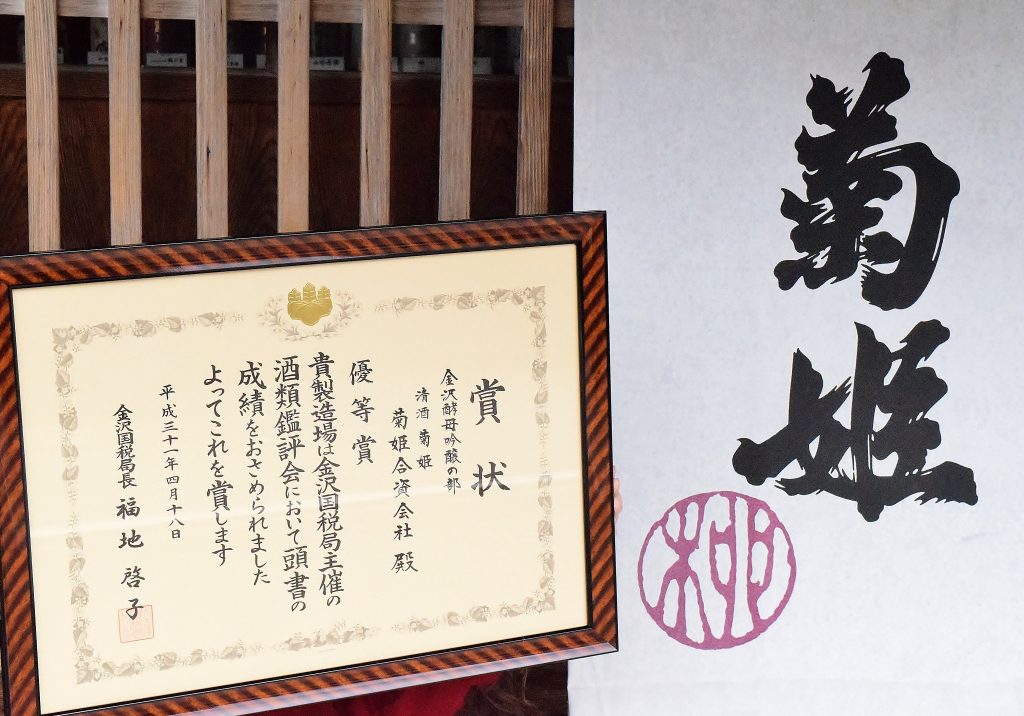 菊姫
柳
賞状
金沢酵母吟醸の部
清酒 菊姫
菊姫合資会社 殿
優等賞
貴製造場は金沢国税局主催の
酒類鑑評会において頭書の
成績をおさめられました
よってこれを賞します
平成三十一年四月十八日
金沢国税局長 福地啓子